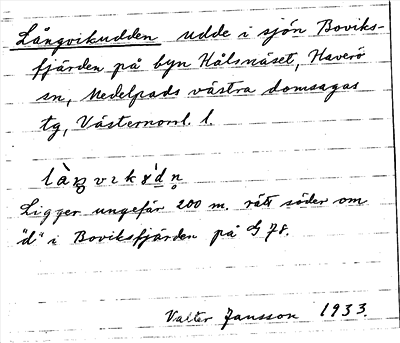 Långvikudden udde i sjön Boviks-
fjärden på byn Hålsnäset, Haverö
sn, Medelpads västra domsagas
tg, Västernorrl. l.
Ligger ungefär 200 m. rätt söder om
"d" i Boviksfjärden på G 78.
Valter Jansson 1933.